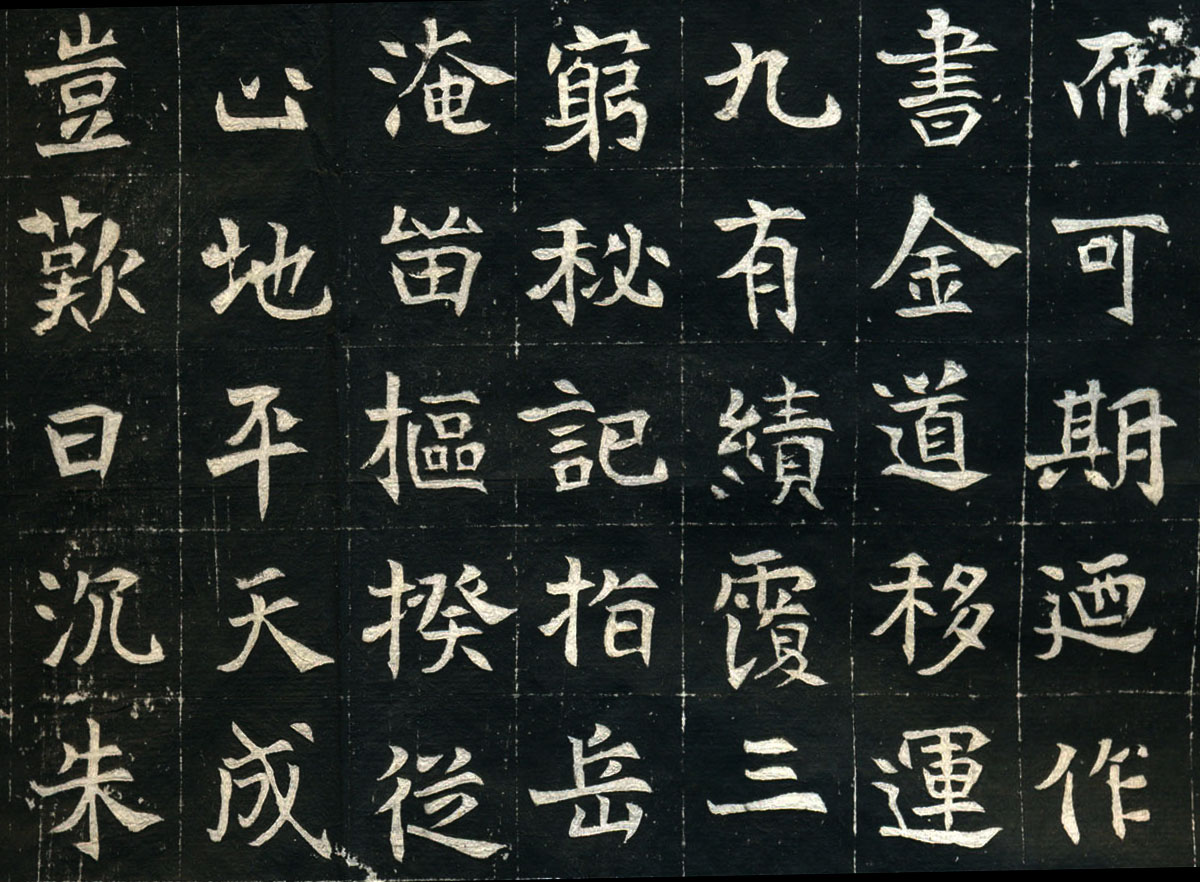 可期迺作
書金道移運
九有績覆三
窮秘記指岳
淹留樞揆從
心地平天成
豈歎日沉朱